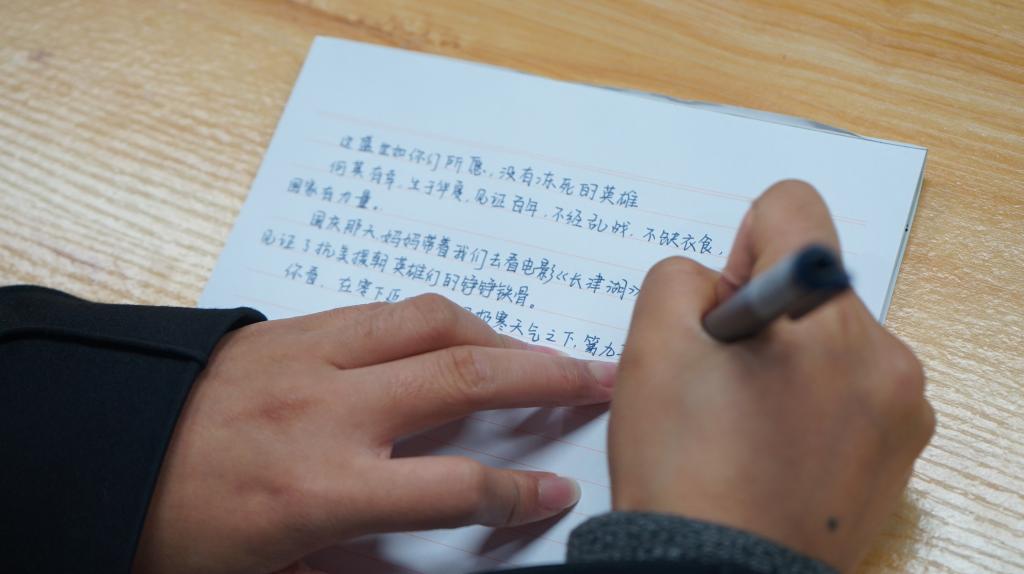 这盛世如你们所愿,没有冻死的英雄
何其有幸,生于华夏,见证百年,不经乱战,不缺衣食,
国家有力量。
国庆那天妈妈带着我们去看电影《长津湖》
见证了抗美援朝英雄们的铮铮铁骨。
你看,在零下
极寒天气之下,第九